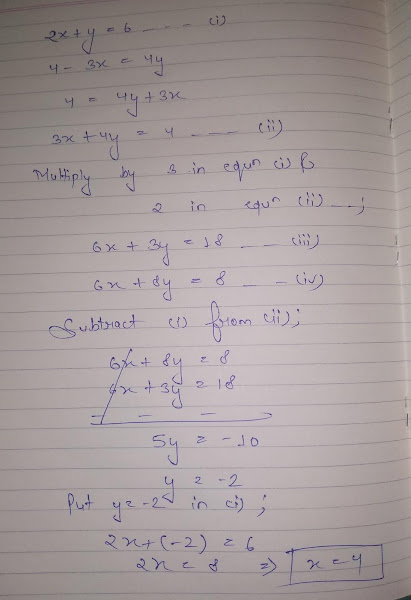 2x + y = 6 ---- (i)
4 - 3x = 4y
4 = 4y + 3x
3x + 4y = 4 ---- (ii)
Multiply by 3 in equn (i) &
2 in equn (ii) ---;
6x + 3y = 18 -- (iii)
6x + 8y = 8 -- (iv)
Subtract (i) from (ii);
6x + 8y = 8
6x + 3y = 18
- - -
5y = -10
y = -2
Put y = -2 in (i) ;
2x + (-2) = 6
2x = 8 => x = 4